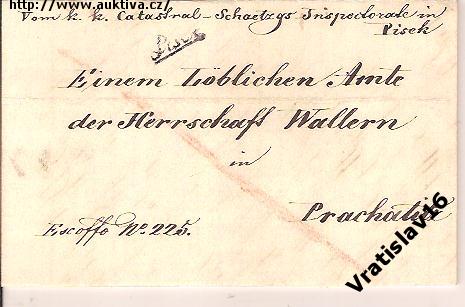 http://www.auktiva.cz/
Vom k. k. Catastral-Schaetzgs Inspectorate in
Pisek
Pisek
Einem Löblichen Amte
der Herrschaft Wallern
in
Prachatitz
Escoffo No. 225.
Vratislav16